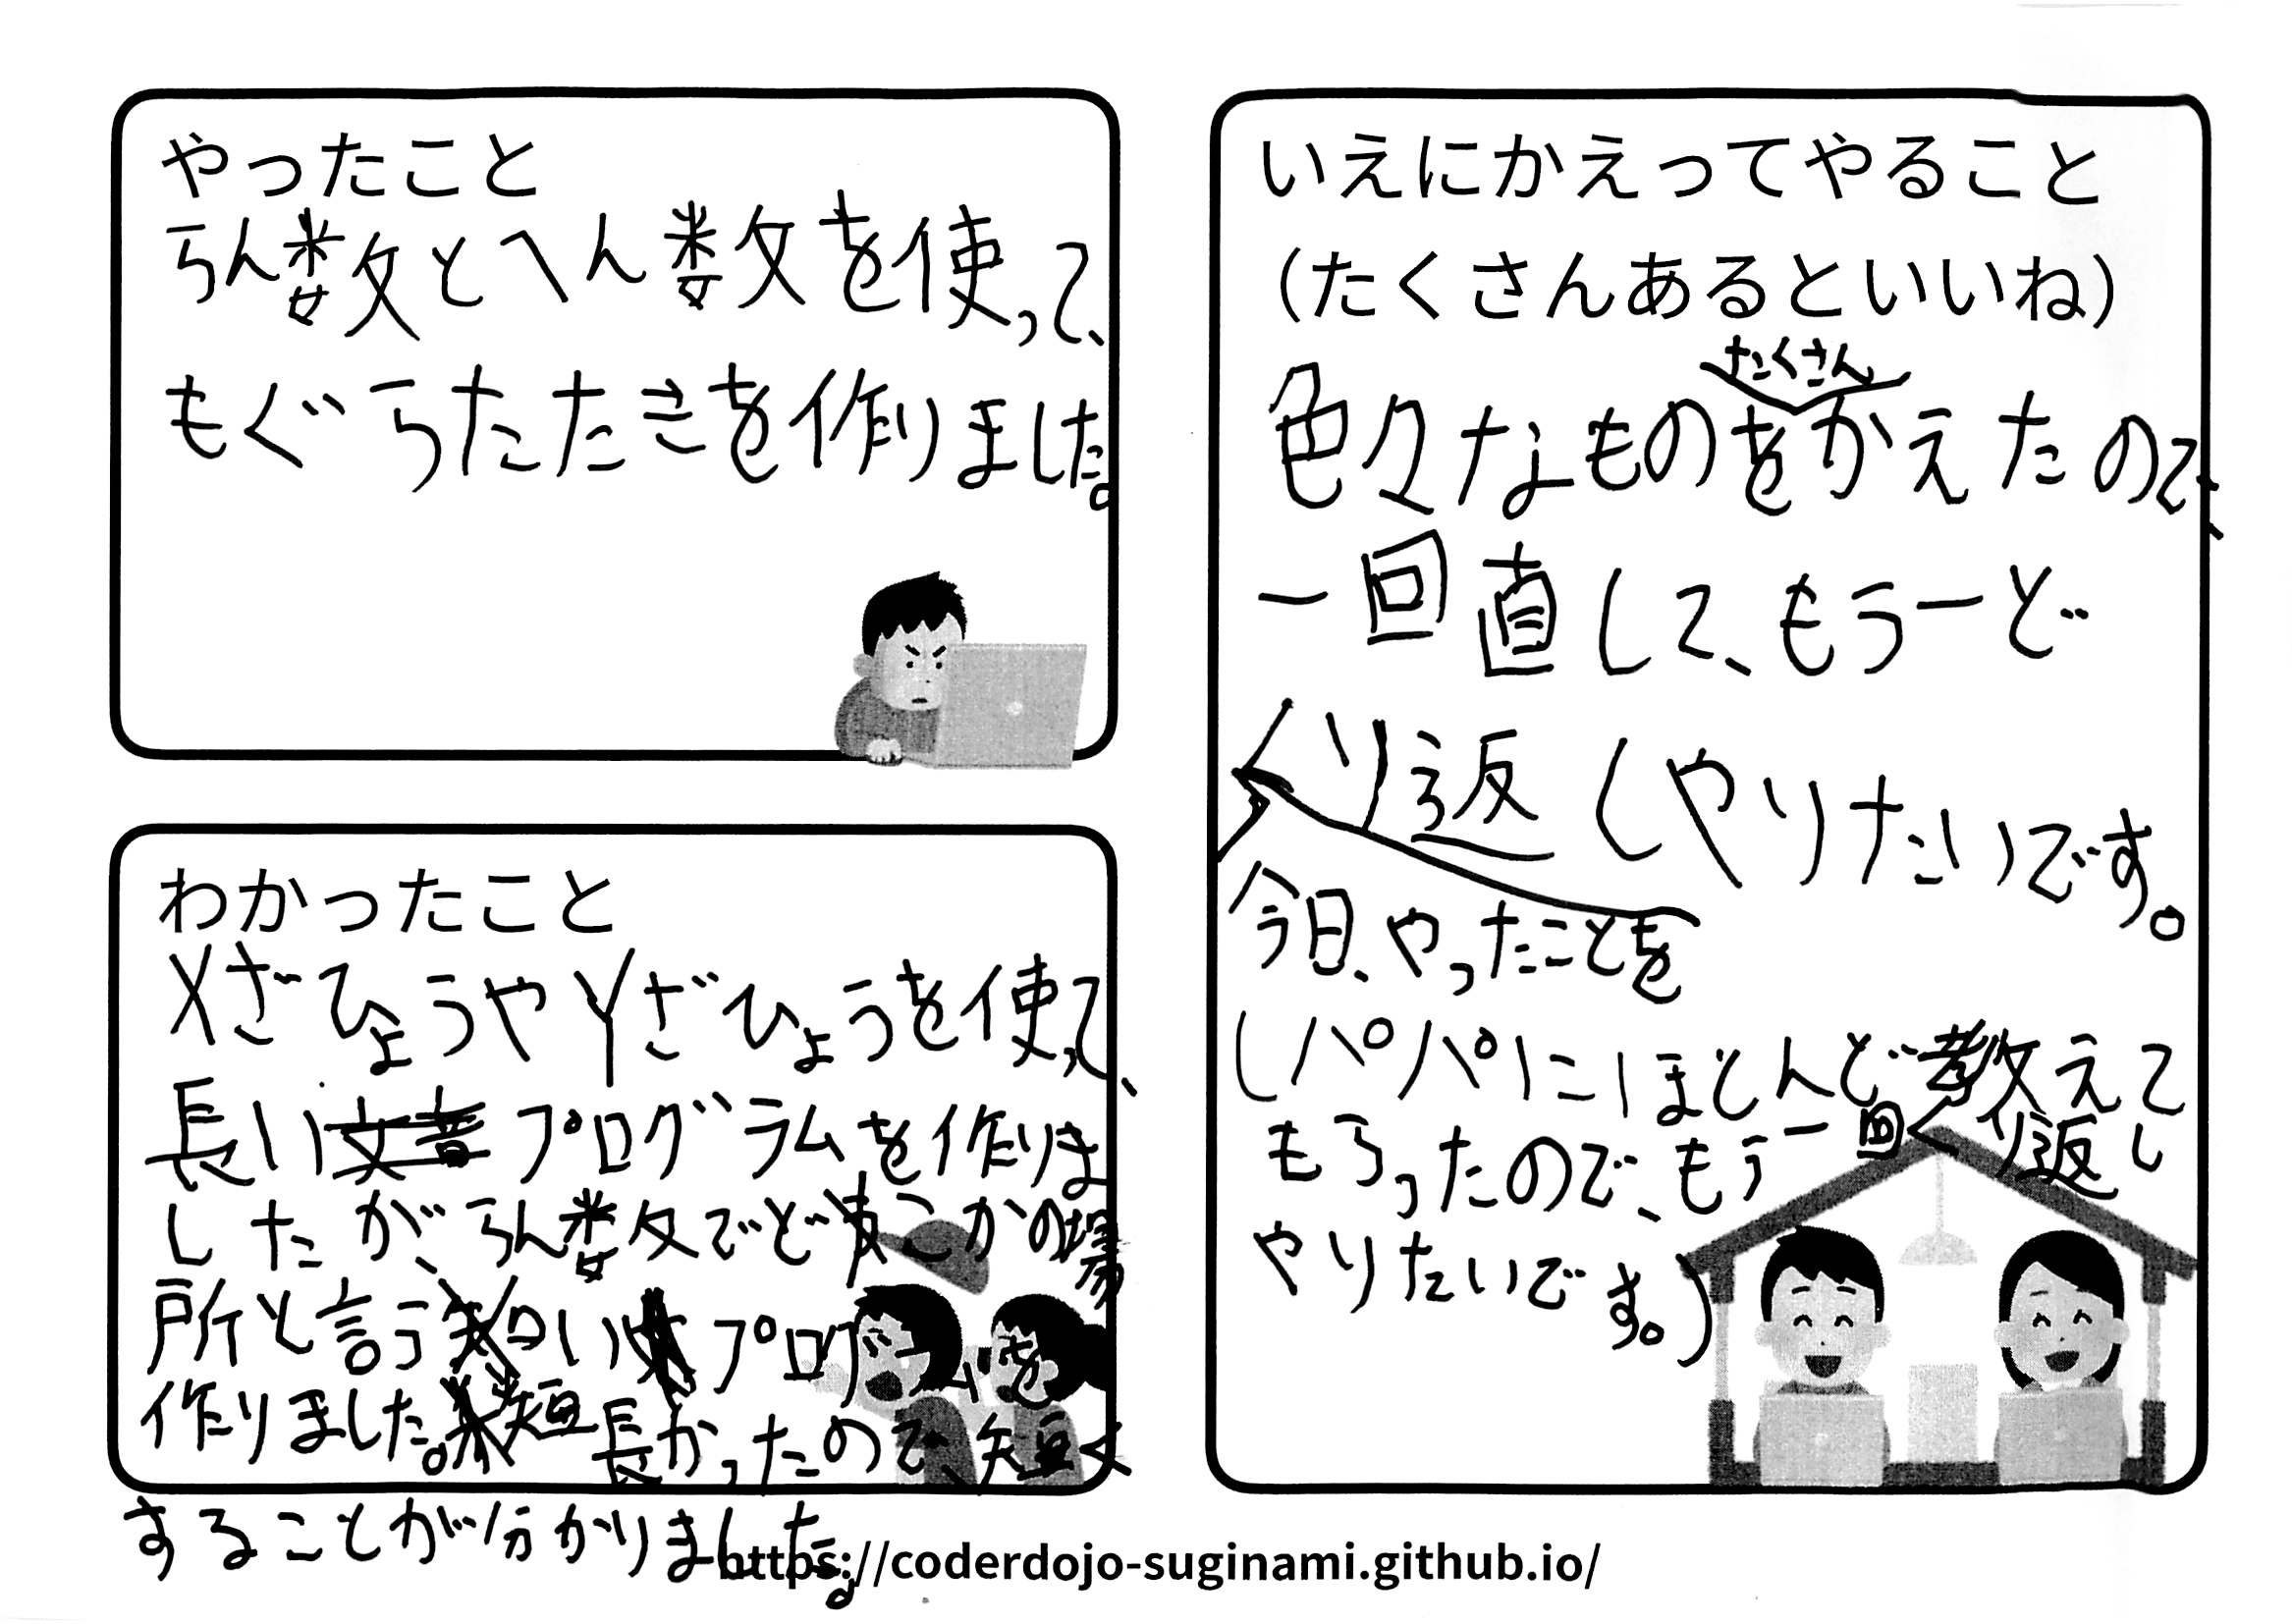 やったこと
らん数とへん数を使って、
もぐらたたきを作りました。
わかったこと
XざひょうやYざひょうを使って、
長いプログラムを作りま
したが、らん数でどこかの場
所と言うプログラムを
作りました。長かったので、短く
することが分かりました。
いえにかえってやること
(たくさんあるといいね)
たくさん
色々なものをかえたので、
一回直して、もう一ど
くり返しやりたいです。
今日、やったことを
(パパにほとんど教えて
もらったので、もう一回くり返し
やりたいです。)
https://coderdojo-suginami.github.io/